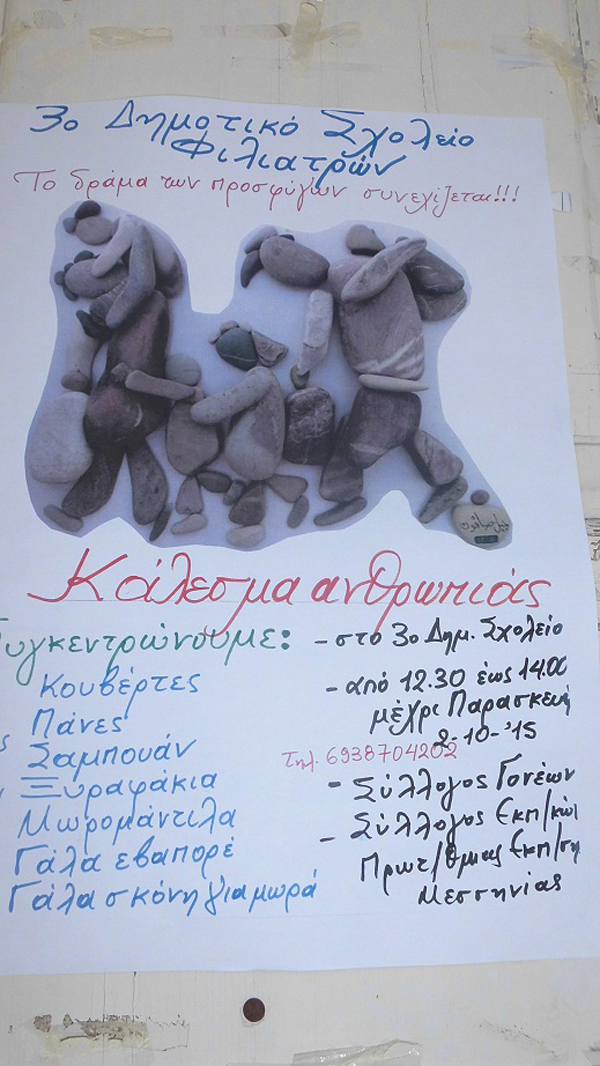 3ο Δημοτικό Σχολείο
Φιλιατρών
Το δράμα των προσφύγων συνεχίζεται!!!
Κάλεσμα ανθρωπιάς
Συγκεντρώνουμε:
Κουβέρτες
Πάνες
Σαμπουάν
Ξυραφάκια
Μωρομάντιλα
Γάλα εβαπορέ
Γάλα σκόνη για μωρά
- στο 3ο Δημ. Σχολείο
- από 12.30 έως 14.00
μέχρι Παρασκευή
2-10-'15
Τηλ. 6938704202
- Σύλλογος Γονέων
- Σύλλογος Εκπ/κών
Πρωτ/θμιας Εκπ/ση
Μεσσηνίας